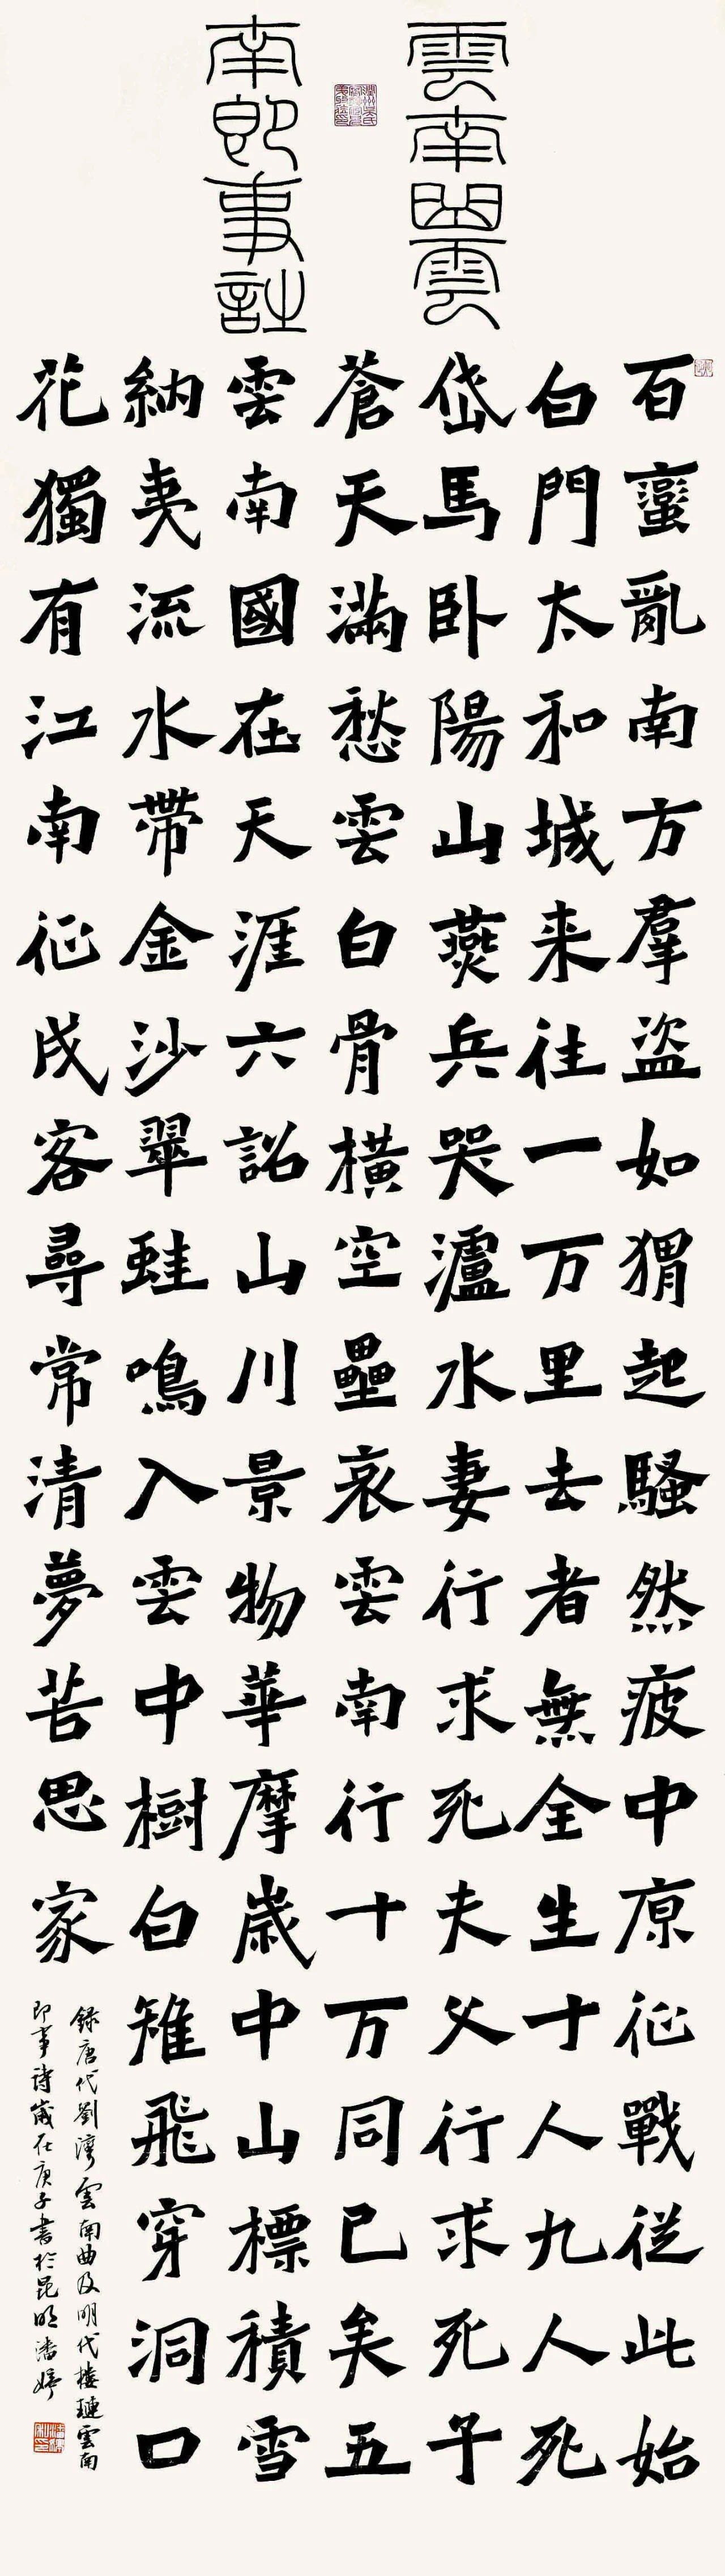 雲南曲雲
南即事詩
百蠻亂南方羣盜如猬起騷然疲中原征戰従此始
白門太和城来往一万里去者無全生十人九人死
岱馬卧陽山燕兵哭瀘水妻行求死夫父行求死子
蒼天滿愁雲白骨橫空壘哀雲南行十万同已矣五
雲南國在天涯六詔山川景物華摩歲中山標積雪
納夷流水帶金沙翠蛙鳴入雲中樹白雉飛穿洞口
花獨有江南征戍客尋常清夢苦思家
錄唐代劉灣雲南曲及明代樓璉雲南
即事詩歲在庚子書於昆明潘婷